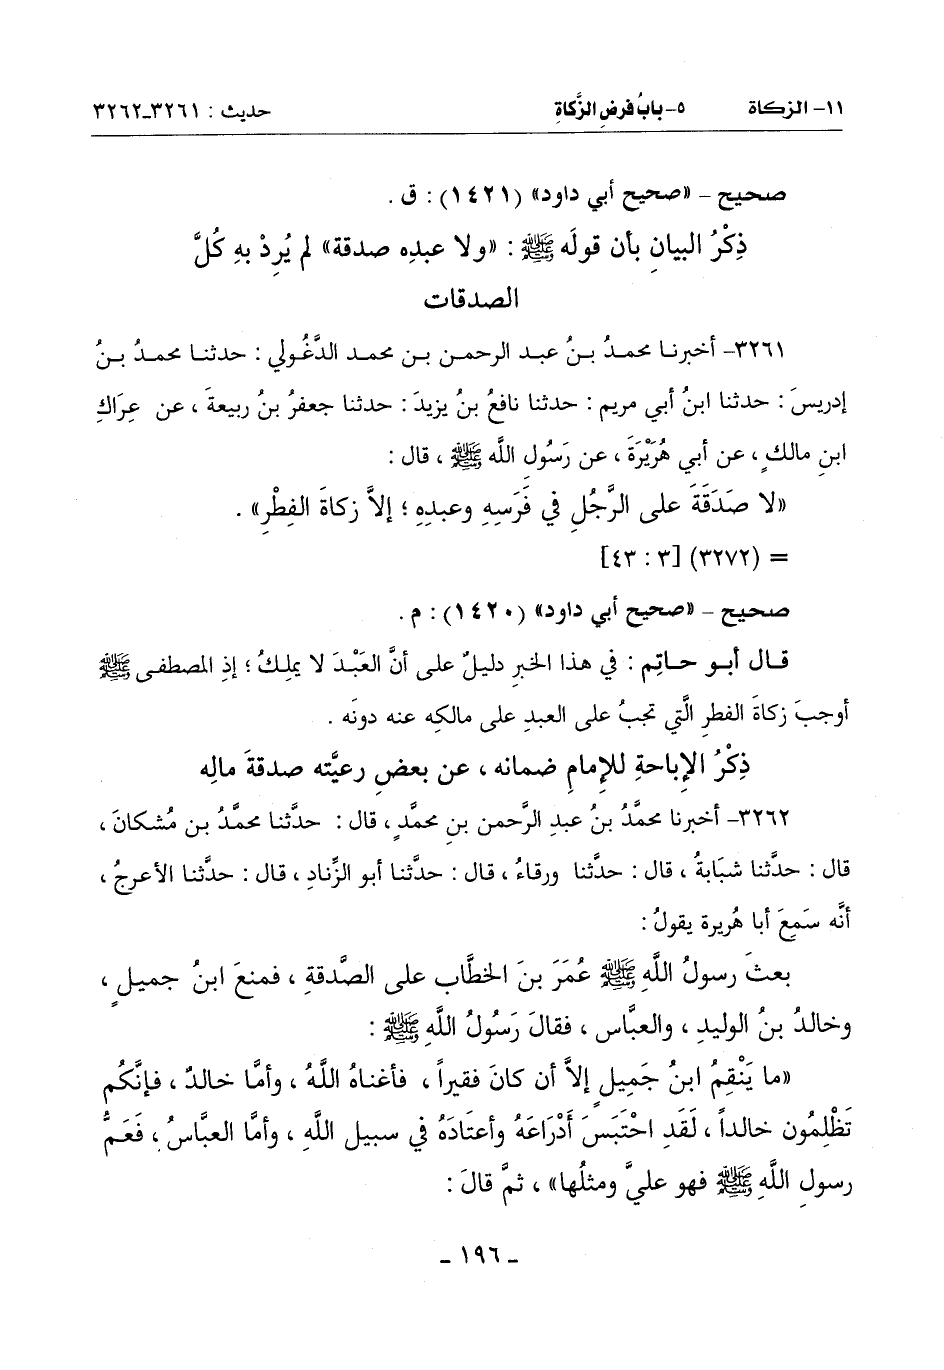 ١١- الزكاة ٥- بابُ فرضِ الزَّكاةِ حديث : ٣٢٦١-٣٢٦٢
صحيح - «صحيح أبي داود» (١٤٢١) : ق .
ذِكْرُ البيانِ بأن قولَه ﷺ : «ولا عبدِه صدقة» لم يُرِدْ بهِ كُلَّ
الصدقات
٣٢٦١- أخبرنا محمدُ بنُ عبد الرحمن بن محمد الدَّغُولي : حدثنا محمدُ بنُ
إدريسَ : حدثنا ابنُ أبي مريم : حدثنا نافعُ بنُ يزيدَ : حدثنا جعفرُ بنُ ربيعةَ ، عن عِرَاكِ
ابنِ مالكٍ ، عن أبي هُرَيْرَةَ ، عن رَسُولِ اللَّه ﷺ ، قال :
«لا صَدَقَةَ على الرَّجُلِ في فَرَسِهِ وعبدِهِ ؛ إلاَّ زكاةَ الفِطْرِ» .
= (٣٢٧٢) [٣ : ٤٣]
صحيح - «صحيح أبي داود» (١٤٢٠) : م .
قال أبو حاتِم : في هذا الخبرِ دليلٌ على أنَّ العَبْدَ لا يملِكُ ؛ إذِ المصطفى ﷺ
أوجبَ زكاةَ الفطرِ الَّتي تجبُ على العبدِ على مالكِه عنه دونَه .
ذِكْرُ الإباحةِ للإمامِ ضمانه ، عن بعضِ رعيَّته صدقةَ مالِه
٣٢٦٢- أخبرنا محمَّدُ بنُ عبدِ الرَّحمن بنِ محمَّدٍ ، قال : حدَّثنا محمَّدُ بن مُشكانَ ،
قال : حدَّثنا شبَابةُ ، قال : حدَّثنا ورقاءُ ، قال : حدَّثنا أبو الزِّنادِ ، قال : حدَّثنا الأعرجُ ،
أنَّه سَمِعَ أبا هُريرة يقولُ :
بعثَ رسولُ اللَّهِ ﷺ عُمَرَ بنَ الخطَّاب على الصَّدقةِ ، فمنعَ ابنُ جميلٍ ،
وخالدُ بنُ الوليدِ ، والعبَّاس ، فقالَ رَسُولُ اللَّهِ ﷺ :
«ما يَنْقِمُ ابنُ جَميلٍ إلاَّ أن كانَ فقيراً ، فأغناهُ اللَّهُ ، وأمَّا خالدٌ ، فإنَّكُم
تَظْلِمُون خالداً ، لَقَدِ احْتَبَسَ أَدْرَاعَهُ وأعتَادَهُ في سبيل اللَّهِ ، وأمَّا العبَّاسُ ، فَعَمُّ
رسولِ اللَّهِ ﷺ فهو عليَّ ومثلُها» ، ثمَّ قالَ :
- ١٩٦ -